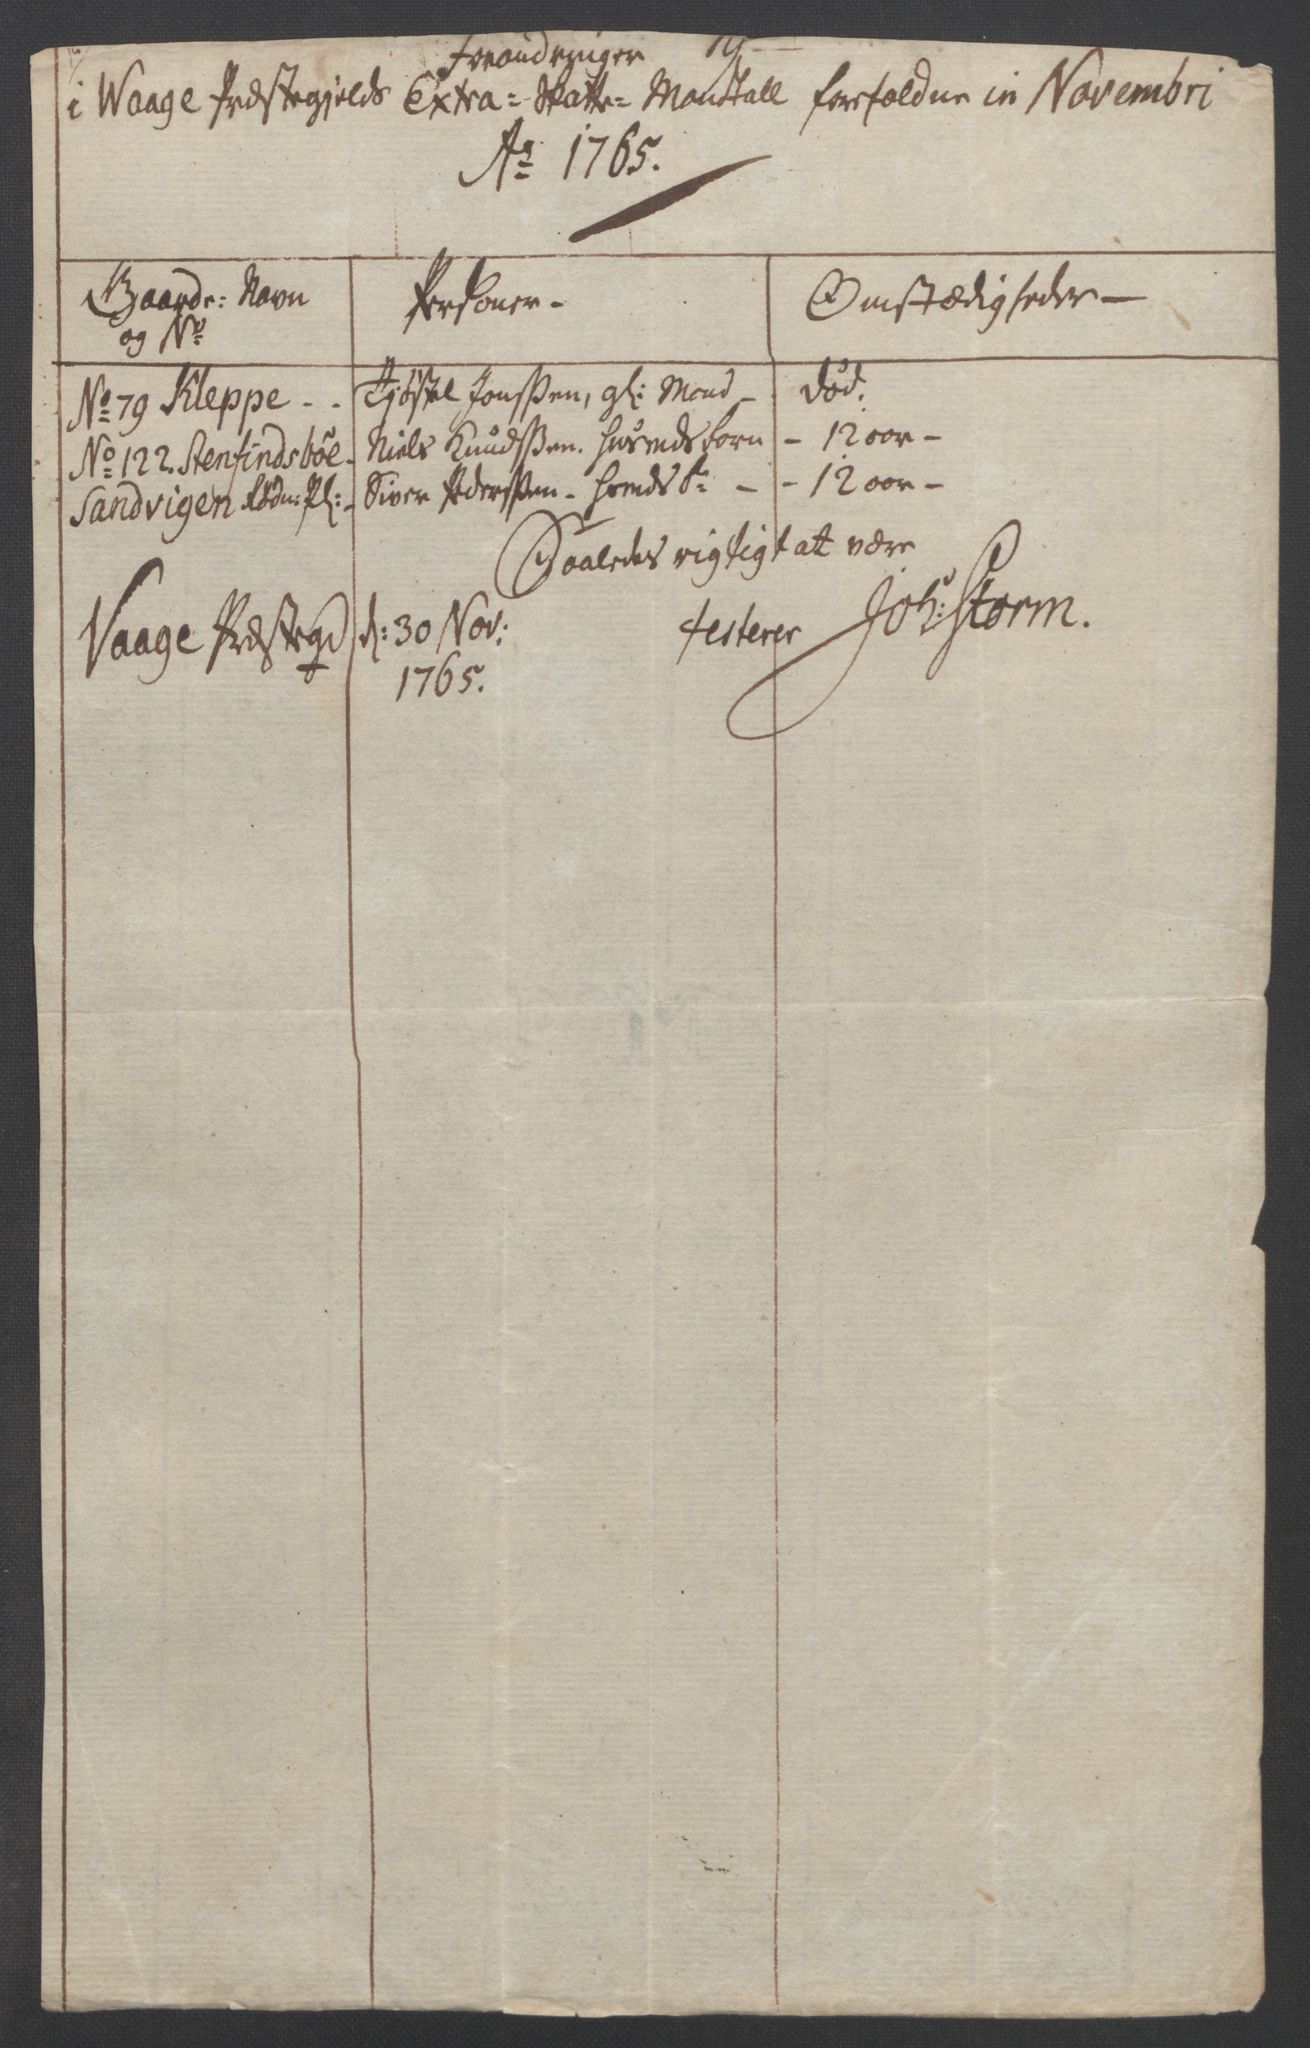 Forandringer
i Waage Præstegjelds Extra= Skatte= Mandtall forfaldne in Novembri
Ao 1765.
Gaarde: Navn
og No
Personer -
Omstædigheder -
No 79 Kleppe - - Tjøstel Jonssen, gl: Mand - død.
No 122. Stenfindsbøe - Niels Knudssen. husmds barn - 12 aar -
Sandvigen Rødn: Pl: - Siver Pederssen - hsmds b: - - 12 aar -
Saaledes rigtigt at være
Vaage Præstegd d: 30 Nov: testerer Joh: Storm.
1765.